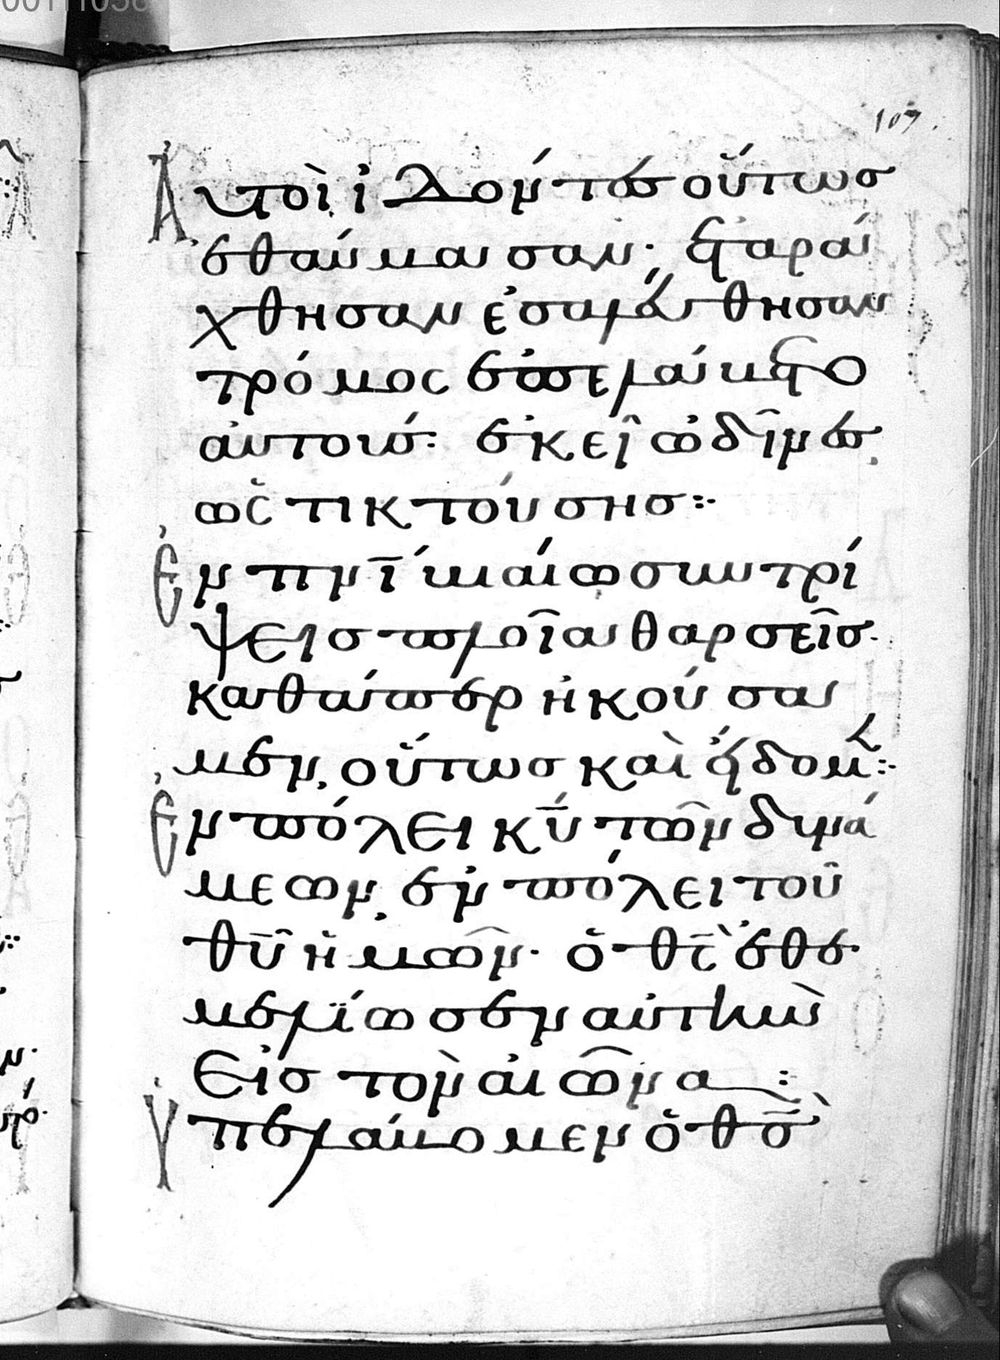 107
Αυτοὶ ἰδόντες οὕτως
ἐθαύμασαν· ἐταρά
χθησαν ἐσαλεύθησαν
τρόμος ἐπελάβετο
αὐτούς: ἐκεῖ ὠδῖνες
ὡς τικτούσης:·
Ἐν πνῑ βιαίω συντρί
ψεις πλοῖα θαρσεῖς·
καθάπερ ἠκούσα
μεν, οὕτως καὶ εἴδομεν:·
Ἐν πόλει κῡ τῶν δυνά
μεων, ἐν πόλει τοῦ
θῡ ἡμῶν· ὁ θς̄ ἐθε
μελίωσεν αὐτὴν
εἰς τὸν αἰῶνα:
Ὑπελάβομεν ὁ θς̄